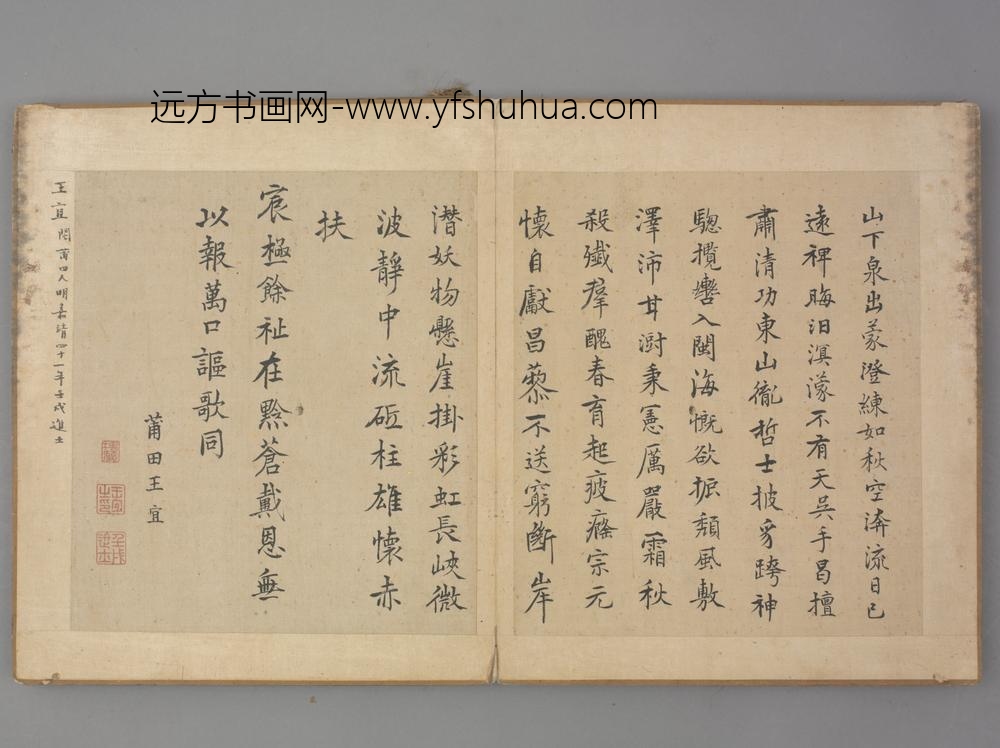 远方书画网-www.yfshuhua.com
山下泉出蒙澄練如秋空渀流日已
遠裨晦汨溟濛不有天吳手曷擅
肅清功東山徹哲士披豸跨神
驄攬轡入閩海慨欲振頹風敷
澤沛甘澍秉憲厲嚴霜秋
殺殲群醜春育起疲癃宗元
懷自獻昌藜不送窮斷岸
潛妖物懸崖掛彩虹長峽微
波靜中流砥柱雄懷赤
扶
宸極餘祉在黔蒼戴恩無
以報萬口謳歌同
莆田王宜
王宜閩莆田人明嘉靖四十一年壬戌進士